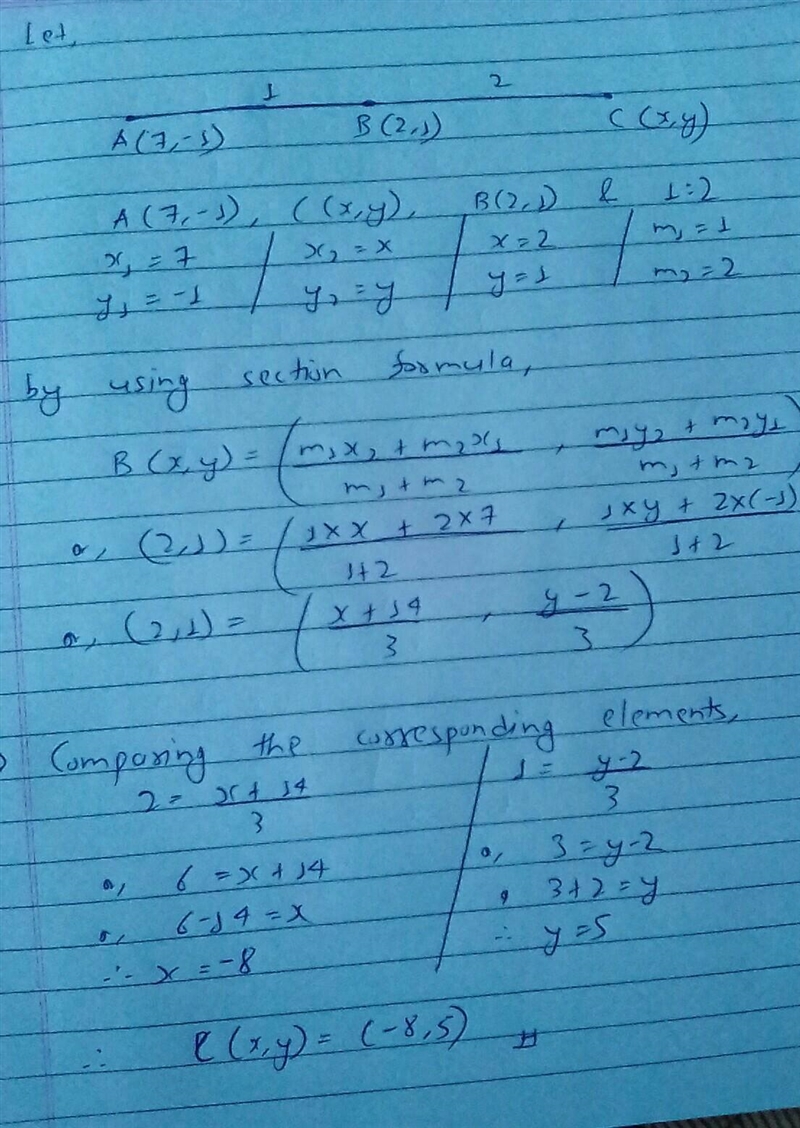 Let,
1 2
A(7,-1) B(2,1) C(x,y)
A(7,-1), C(x,y), B(2,1) & 1:2
x₁ = 7 / x₂ = x / x = 2 / m₁ = 1
y₁ = -1 / y₂ = y / y = 1 / m₂ = 2
by using section formula,
B(x,y) = ( (m₁x₂ + m₂x₁)/(m₁ + m₂) , (m₁y₂ + m₂y₁)/(m₁ + m₂) )
or, (2,1) = ( (1×x + 2×7)/(1+2) , (1×y + 2×(-1))/(1+2) )
or, (2,1) = ( (x+14)/3 , (y-2)/3 )
Comparing the corresponding elements,
2 = (x+14)/3 / 1 = (y-2)/3
or, 6 = x+14 / or, 3 = y-2
or, 6-14 = x / 3+2 = y
∴ x = -8 / ∴ y = 5
∴ C(x,y) = (-8,5) #